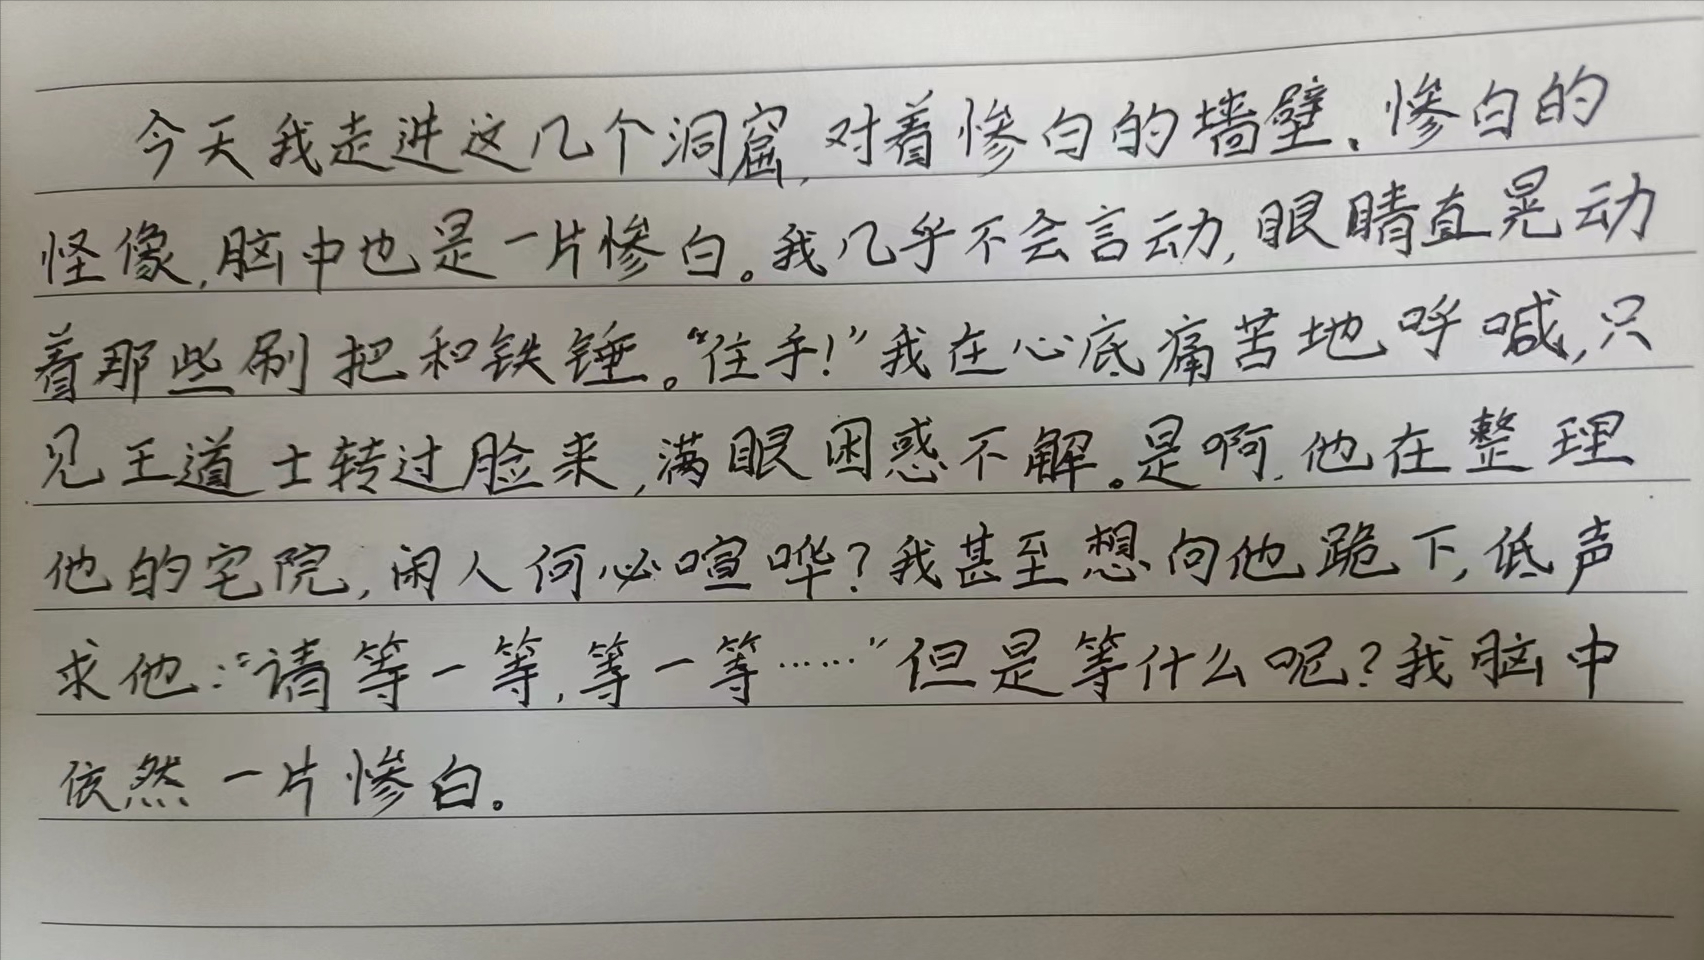 今天我走进这几个洞窟,对着惨白的墙壁、惨白的
怪像,脑中也是一片惨白。我几乎不会言动,眼睛直晃动
着那些刷把和铁锤。“住手!”我在心底痛苦地呼喊,只
见王道士转过脸来,满眼困惑不解。是啊,他在整理
他的宅院,闲人何必喧哗?我甚至想向他跪下,低声
求他:“请等一等,等一等……”但是等什么呢?我脑中
依然一片惨白。